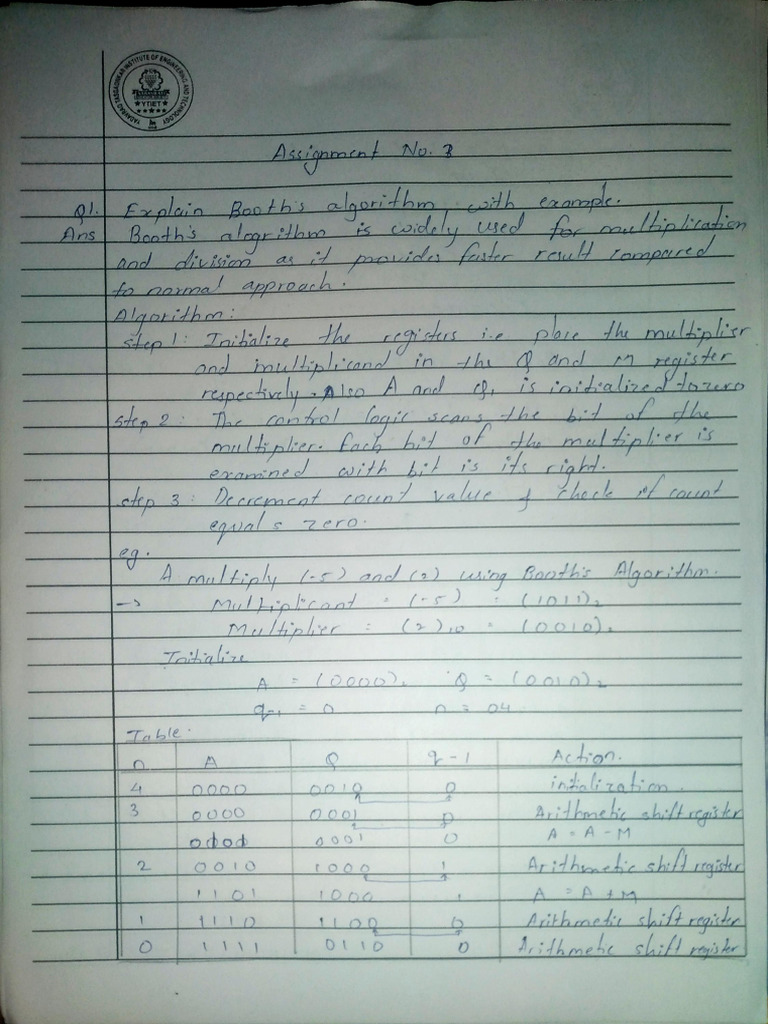 YADAVRAO TASGAONKAR INSTITUTE OF ENGINEERING AND TECHNOLOGY
YTIET
Assignment No. 3
Q1. Explain Booth's algorithm with example.
Ans Booth's alogrithm is widely used for multiplication
and division as it provides faster result compared
to normal approach.
Algorithm:
Step 1: Initialize the registers i.e place the multiplier
and multiplicand in the Q and M register
respectively. Also A and Q1 is initialized to zero
Step 2: The control logic scans the bit of the
multiplier. Each bit of the multiplier is
examined with bit is its right.
step 3: Decrement count value & check if count
equals zero.
eg.
A multiply (-5) and (2) using Booth's Algorithm.
→ Multiplicant = (-5) = (1011)2
Multiplier = (2)10 = (0010)2
Initialize
A = (0000)2 Q = (0010)2
q-1 = 0 n = 04
Table.
n A Q q-1 Action.
4 0000 0010 0 initialization.
3 0000 0001 0 Arithmetic shift register
0001 0 A = A - M
2 0010 1000 1 Arithmetic shift register
1101 1000 1 A = A + M
1 1110 1100 0 Arithmetic shift register
0 1111 0110 0 Arithmetic shift register